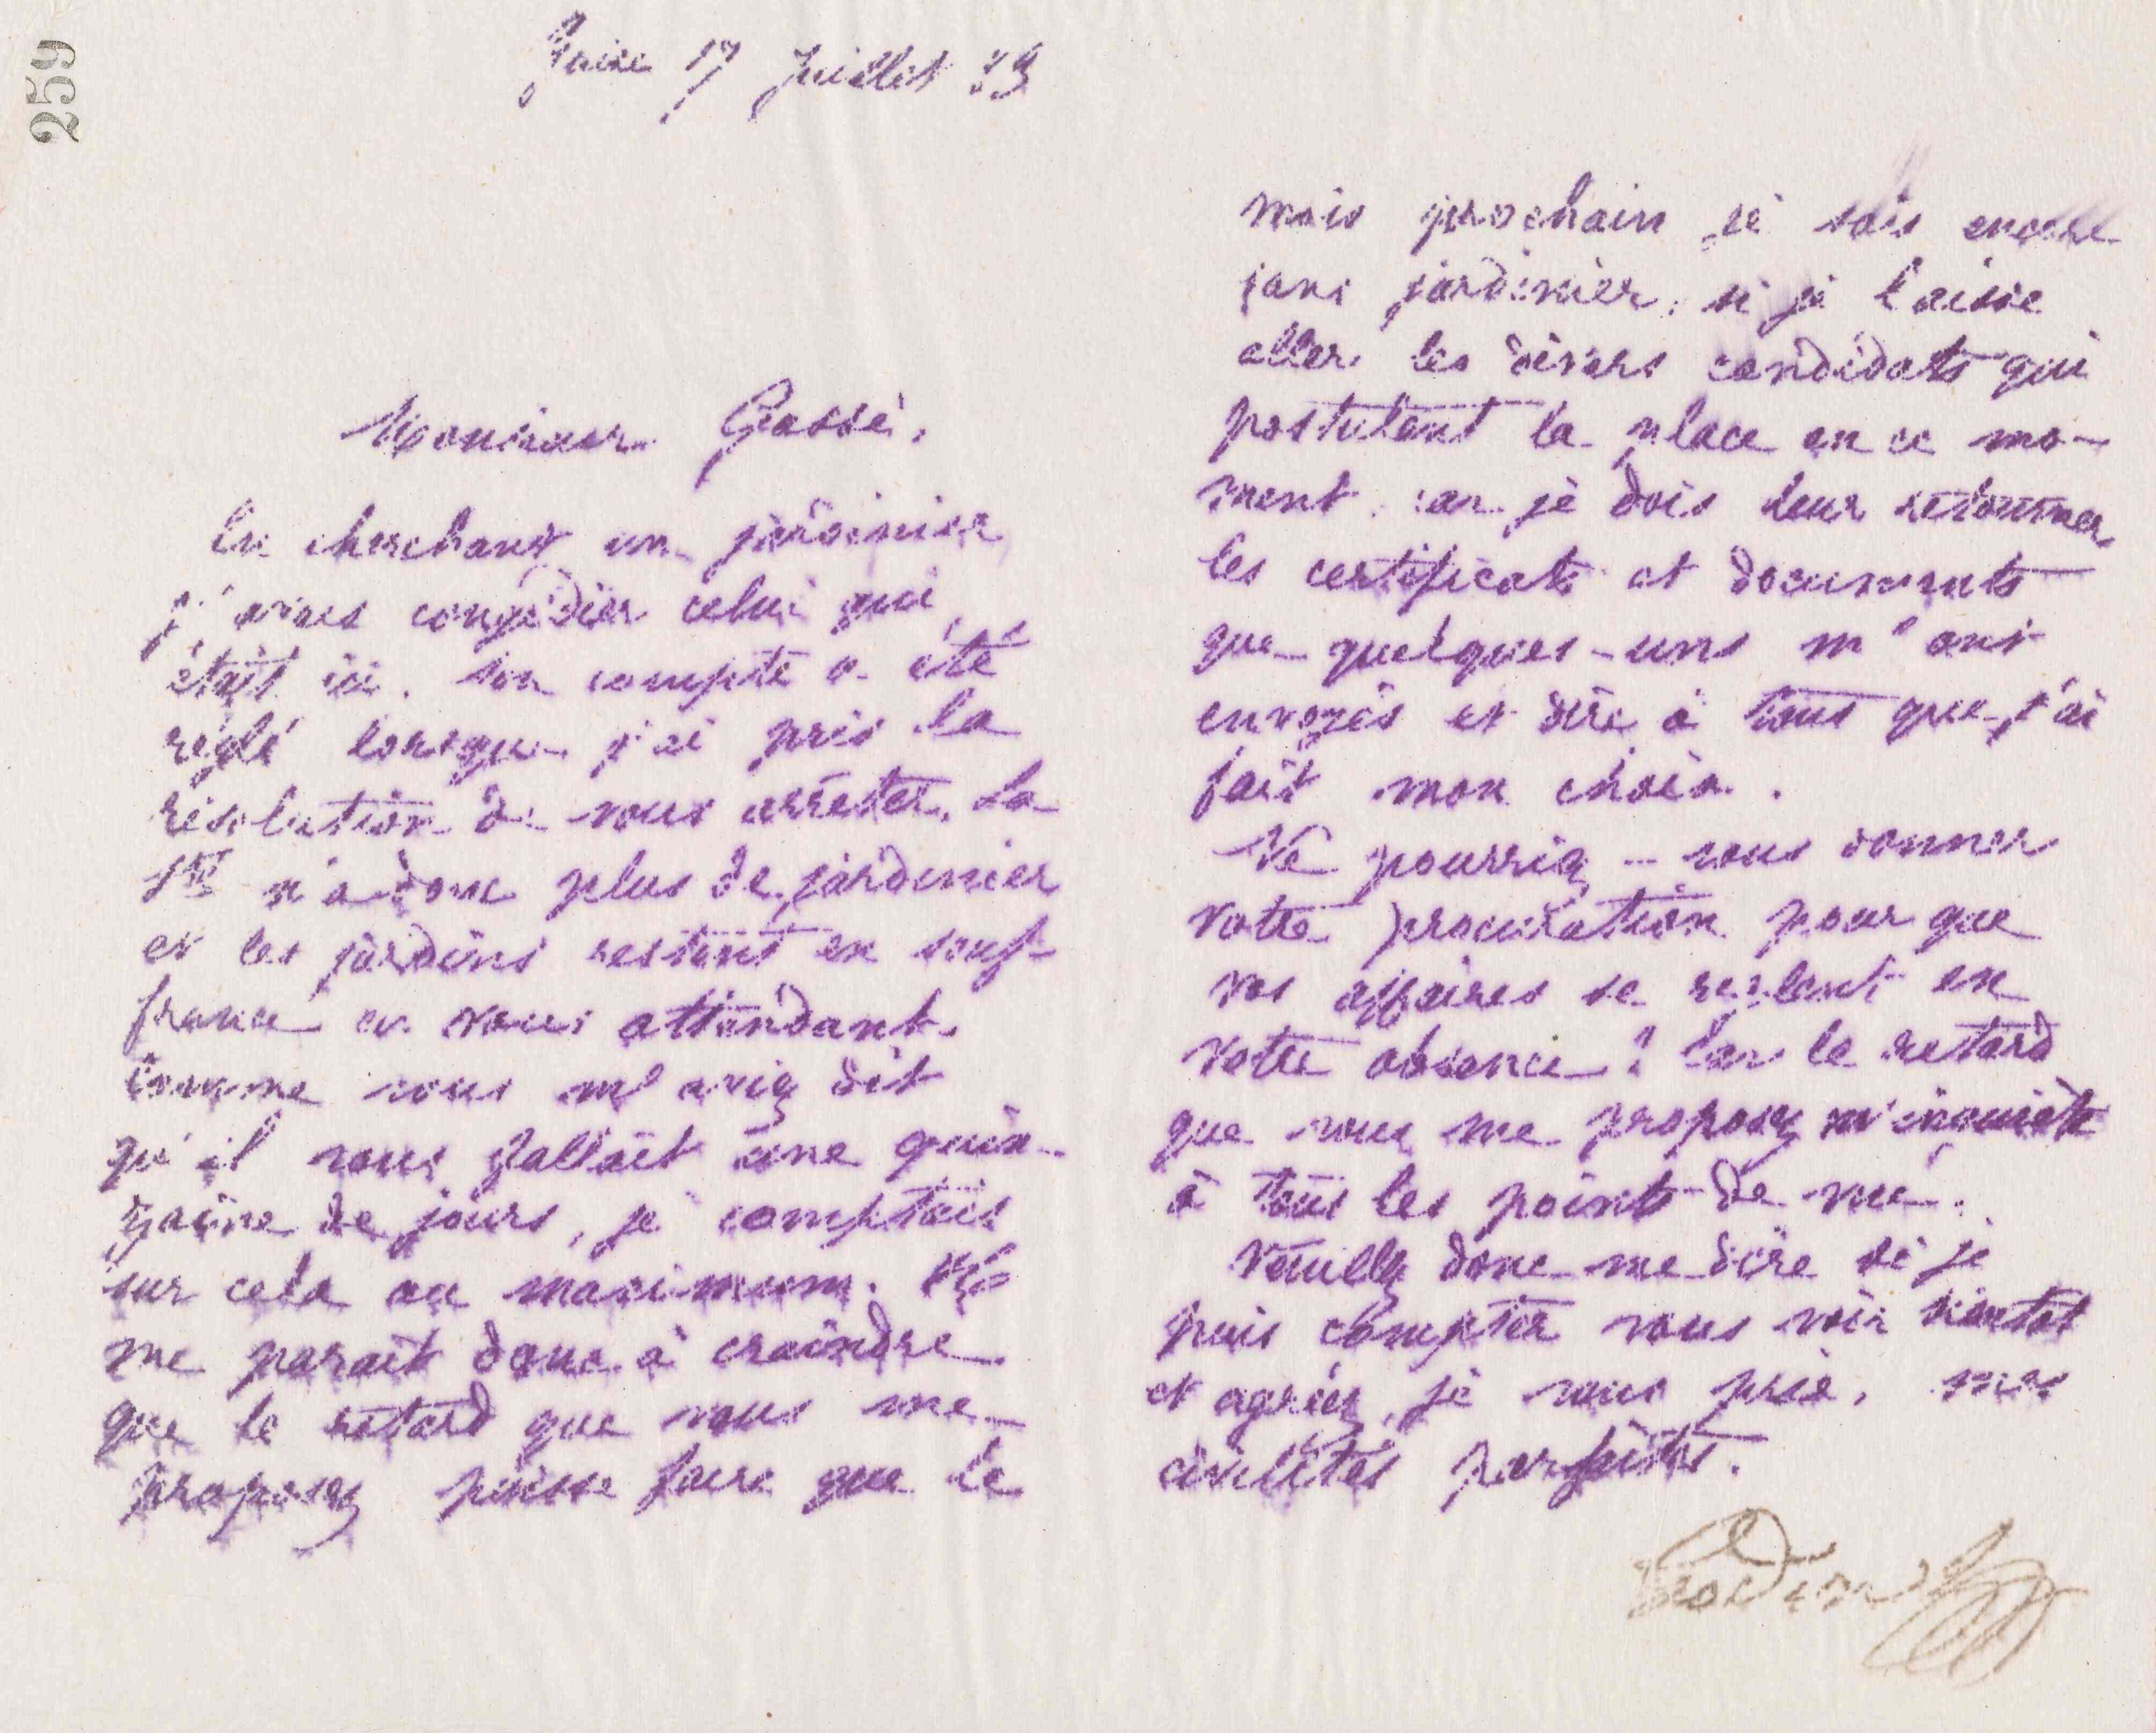 259
Guise 17 Juillet 89
Monsieur Gassé,
En cherchant un jardinier
j'avais congédier celui qui
était ici. Son compte a été
réglé lorsque j'ai pris la
résolution de vous arrêter. La
Sté n'a donc plus de jardinier
et les jardins restent en souf-
france en vous attendant.
Comme vous m'aviez dit
qu'il vous fallait une quin-
zaine de jours, je comptais
sur cela au maximum. Il
me parait donc à craindre
que le retard que vous me
proposez puisse faire que le
mois prochain je sois encore
sans jardinier, si je laisse
aller les divers candidats qui
postulent la place en ce mo-
ment. car je dois leur retourner
les certificats et documents
que quelques-uns m'ont
envoyés et dire à tous que j'ai
fait mon choix.
Ne pourriez-vous donner
votre procuration pour que
vos affaires se règlent en
votre absence? Car le retard
que vous me proposez m'inquiète
à tous les points de vue.
Veuillez donc me dire si je
puis compter vous voir bientot
et agréez, je vous prie, mes
civilités parfaites.
Godin